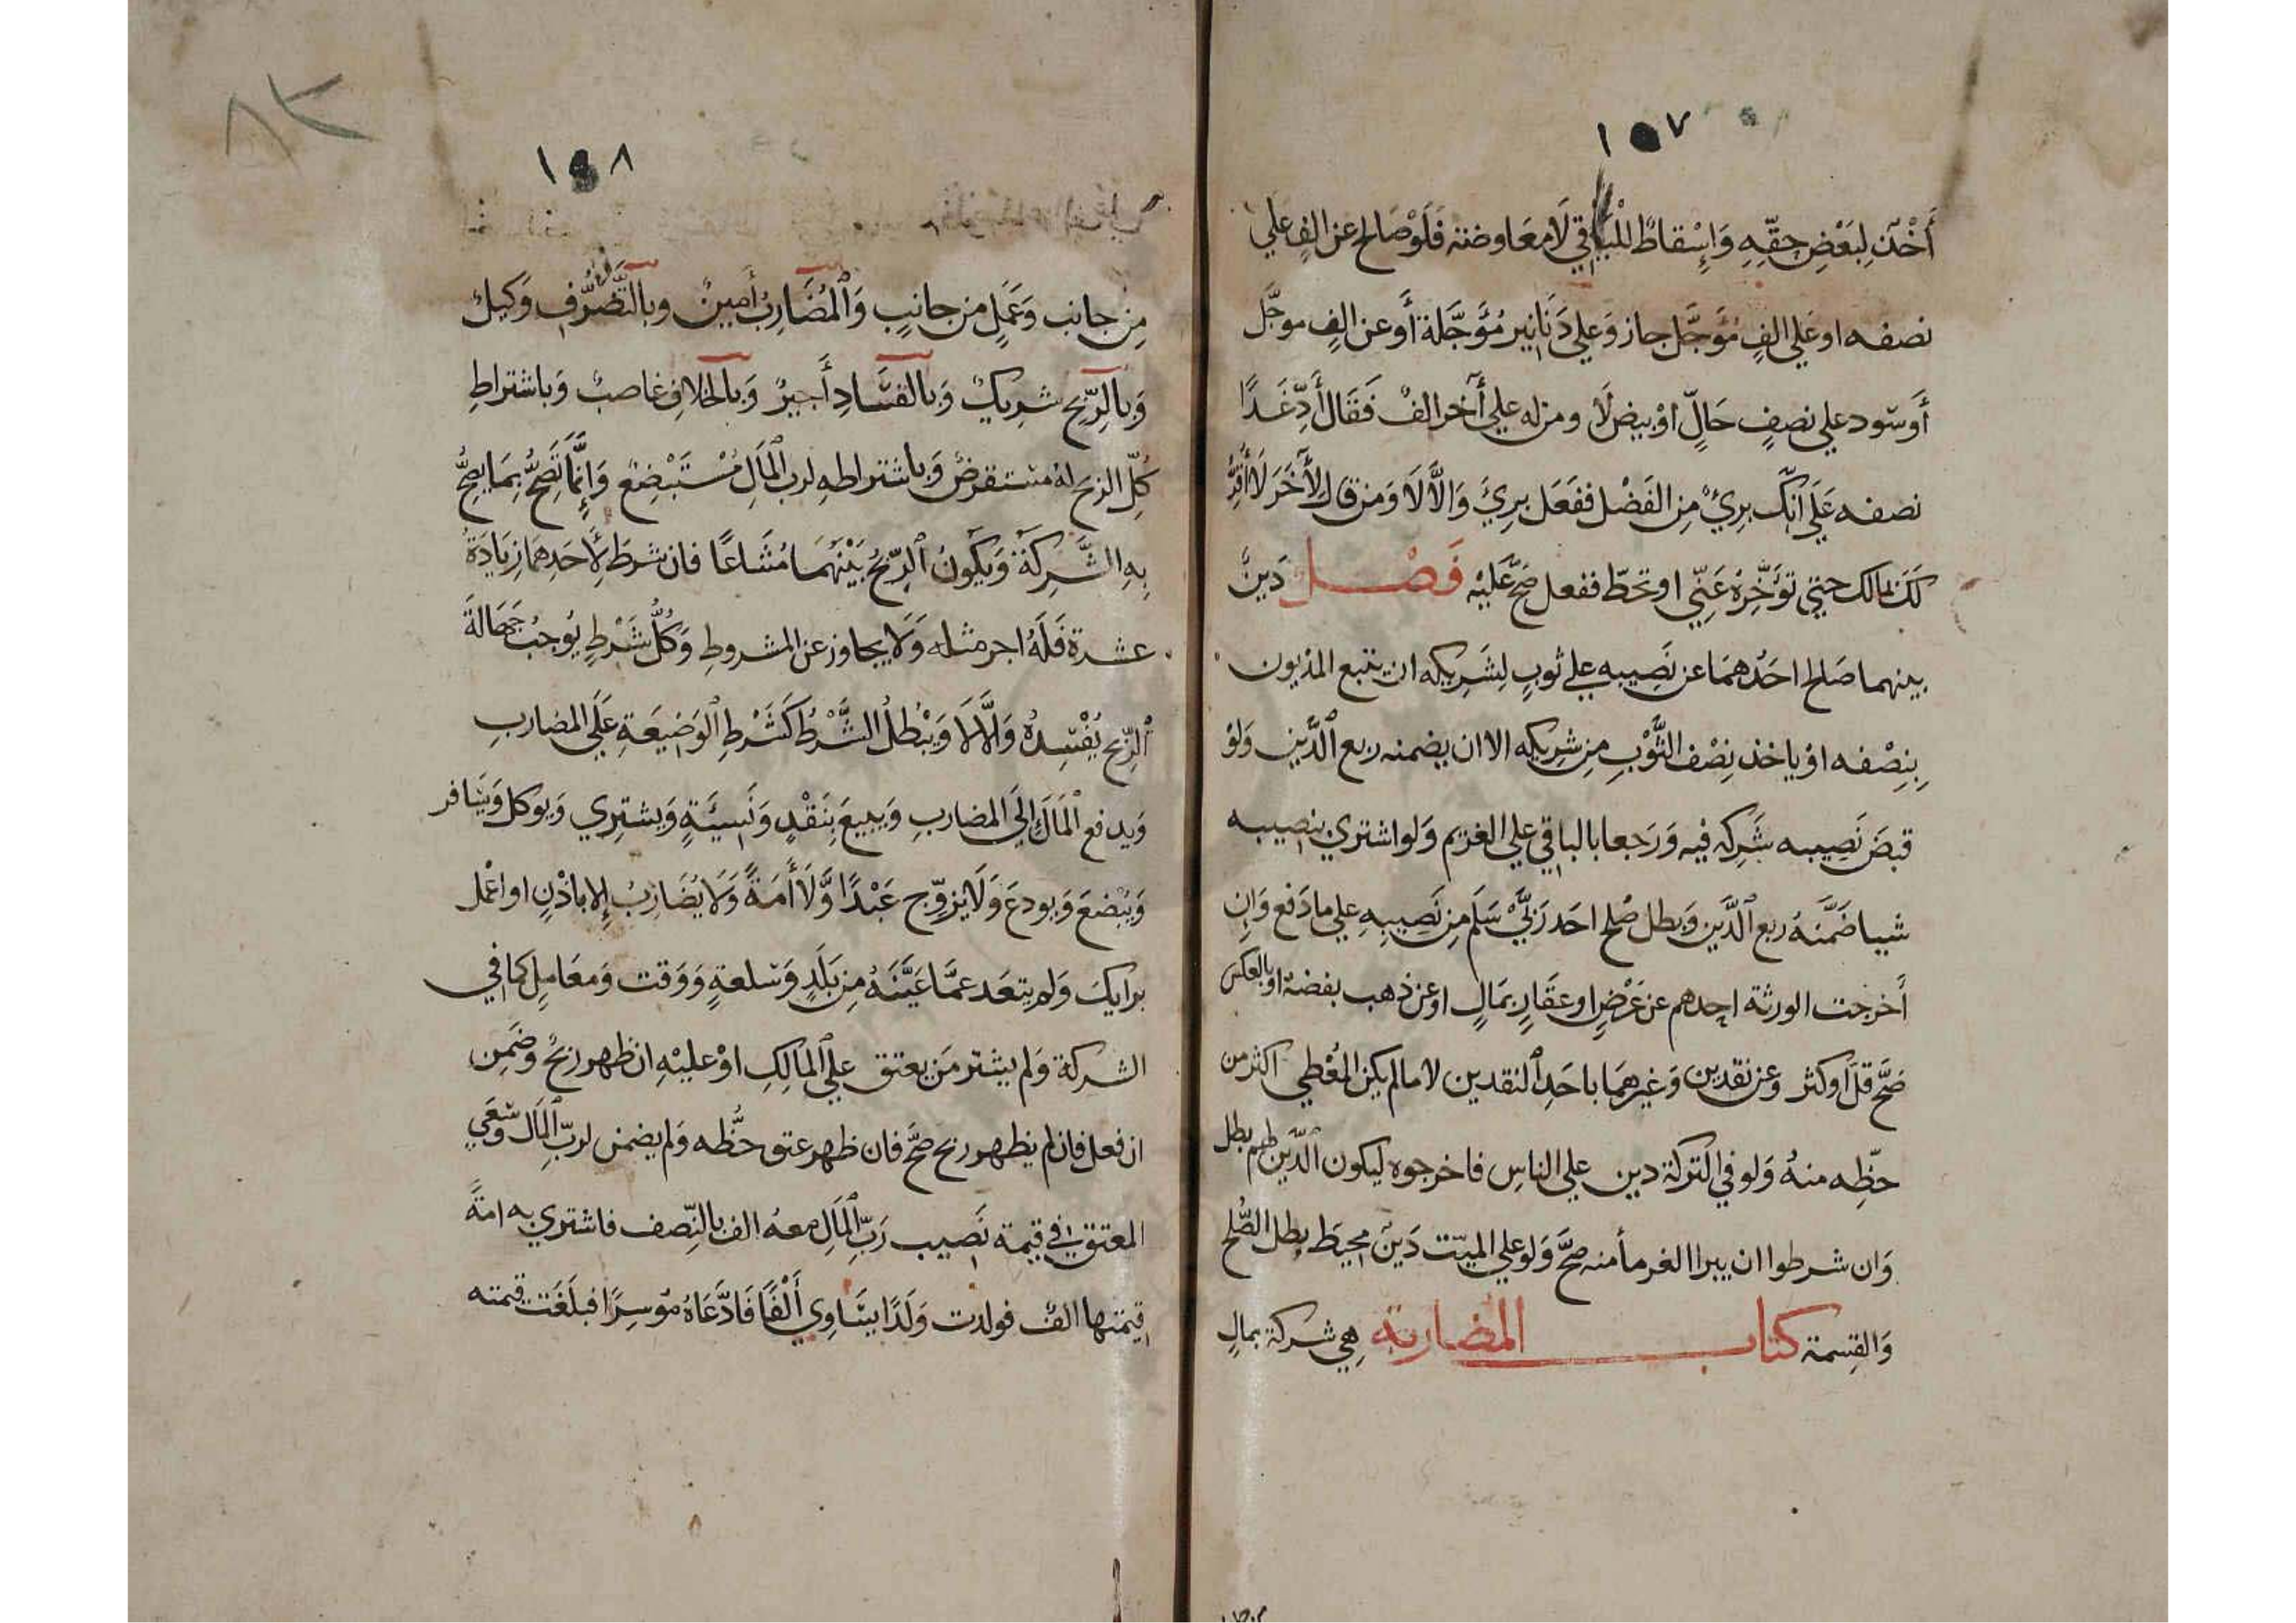 ١٥٧
أَخْذٌ لِبَعْضِ حِقِّهِ وَإِسْقاطٌ لِلْبَاقِي لَا مُعَاوضة فَلَوْ صَالح عن الفٍ علي
نصفه او عَلي الفٍ مُؤَجَّل جاز وَعلي دَنَانِير مُؤَجَّلة أو عن الفٍ موجَّل
أَو سود علي نصفٍ حَالّ اوْ بيض لَا ومن له علي آخر الفٌ فَقَال أَدِّ غَدًا
نصفه عَلَي انّك بريٌ مِن الفَضْل ففَعَل برِيَ وَالَّا لَا وَمن قال لِآخَر لَا أُقِرُّ
لَكَ بمالك حتي تؤَخِّرهُ عَنّي او تحَطّ ففعل صَحَّ عَليْه فَصْل دَينٌ
بينهما صَالح احَدُهمَا عن نَصِيبه علي ثوبٍ لِشَرِيكه ان يتبع المديون
بِنِصْفه اوْ ياخذ نِصْف الثَّوْبِ مِن شرِيكه الا ان يضمنه ربع الدَّين وَلوْ
قبضَ نَصِيبه شَرِكه فيه وَرَجعا بالباقي علي الغريم وَلو اشتري بنصيبه
شيا ضَمَّنَهُ ربع الدَّين وَبطل صُلح احَد رَبَّيْ سَلَم مِن نَصِيبِهِ علي ما دَفع وَان
أَخرجت الورثة احدهم عن عَرْضٍ او عقَارٍ بمَالٍ او عن ذهب بفضة او بالعكس
صَحَّ قلّ او كثر وَعن نقدين وَغيرهمَا باحَدِ النقدين لا ما لم يكن المُعْطي اكثر من
حظِّه منهُ وَلو في التركة دين علي الناسِ فاخرجوه ليكون الدَّين لهم بطل
وَان شرطوا ان يبرا الغرمأ منه صحَّ وَلو علي الميّت دَينٌ محيط بطل الصُّلح
وَالقِسمة كتاب المضاربة هِي شركة بمالٍ
١٥٨
مِن جانب وَعَمَلٍ من جانبٍ وَالْمُضَارِبُ أَمِينٌ وبالتَّصَرُّف وَكيلٌ
وَبالرِّبح شريكٌ وَبالفسَادِ أَجيرٌ وَبالخلافِ غاصبٌ وَباشتراطِ
كُلّ الربح لهُ مستقرضٌ وَباشتراطه لرب المَال مُسْتَبْضِعٌ وَإِنَّمَا تَصِحُّ بِمَا يصِحُّ
بِهِ الشَّرِكَة وَيَكُونُ الرّبحُ بَيْنَهُمَا مُشَاعًا فان شرط لِأَحَدِهمَا زِيَادَةُ
عشرة فَلَهُ اجر مثله وَلَا يجاوز عن المشروط وَكُلُّ شَرْطٍ يُوجبُ جَهَالَةَ
الرِّبح يُفْسِدُهُ وَالَّا لَا وَيَبْطلُ الشَّرْطُ كَشَرْطِ الوَضِيعَةِ عَلَي المضاربِ
وَيدفع المَالَ إِلَي المضاربِ وَيَبيعَ بِنَقْدٍ وَنَسِيَّةٍ وَيشتري وَيوكل وَيسَافر
وَيُبْضعَ وَيودعَ وَلَا يزوّج عَبْدًا وَّلَا أَمَةً وَلَا يُضَارِبُ إلا باذْنٍ او اعْمل
برايكَ وَلم يتعَد عمَّا عَيَّنَهُ مِن بَلَدٍ وَسْلعةٍ وَوَقت وَمعَامِل كما في
الشركة وَلم يشتر مَن يعتق علي المَالِكِ اوْ عليْهِ ان ظهر ربحٌ وَضَمِن
ان فعل فان لم يظهر ربح صَحَّ فان ظهر عتق حَظّه وَلم يضمن لربِّ المَال وَسَعَي
المعتق في قيمة نَصِيب رَبّ المَالِ معهُ الف بالنِّصف فاشتري به امَةً
قيمتها الفٌ فولدت وَلَدًا يسَاوِي أَلْفًا فَادَّعَاهُ مُوسِرًا فبلَغَت قيمته